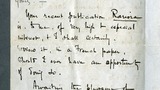 Your recent publication
is to be of very high to especial
interest, & I shall certainly
review it in a French paper
should I have an opportunity
of doing so.
Awaiting the pleasure of